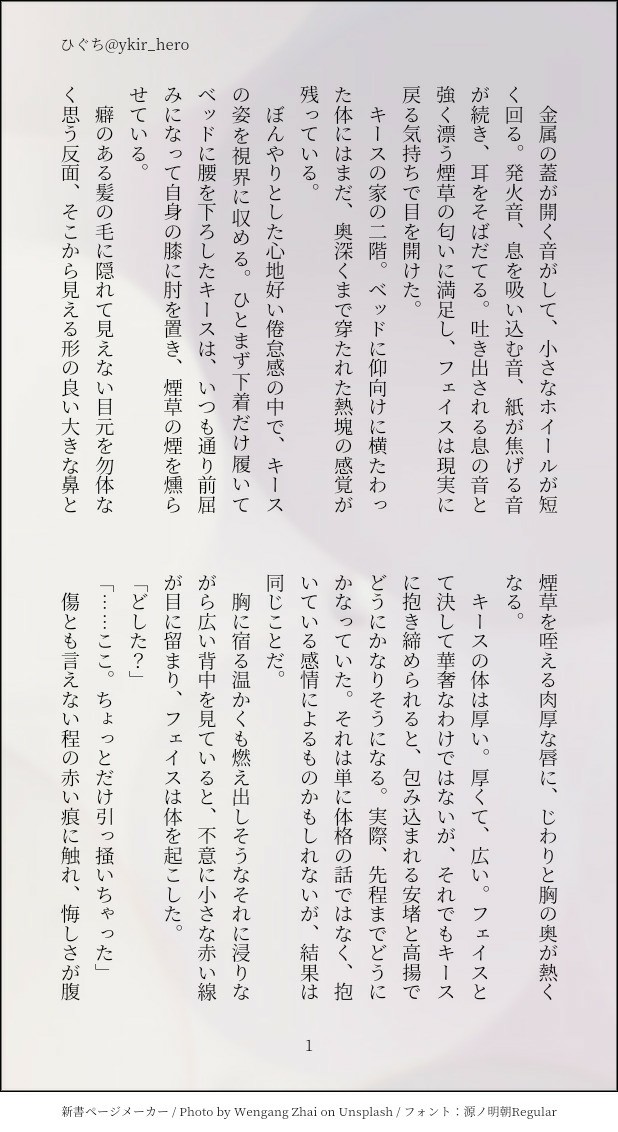 ひぐち@ykir_hero
　金属の蓋が開く音がして、小さなホイールが短
く回る。発火音、息を吸い込む音、紙が焦げる音
が続き、耳をそばだてる。吐き出される息の音と
強く漂う煙草の匂いに満足し、フェイスは現実に
戻る気持ちで目を開けた。
　キースの家の二階。ベッドに仰向けに横たわっ
た体にはまだ、奥深くまで穿たれた熱塊の感覚が
残っている。
　ぼんやりとした心地好い倦怠感の中で、キース
の姿を視界に収める。ひとまず下着だけ履いて
ベッドに腰を下ろしたキースは、いつも通り前屈
みになって自身の膝に肘を置き、煙草の煙を燻ら
せている。
　癖のある髪の毛に隠れて見えない目元を勿体な
く思う反面、そこから見える形の良い大きな鼻と
煙草を咥える肉厚な唇に、じわりと胸の奥が熱く
なる。
　キースの体は厚い。厚くて、広い。フェイスと
て決して華奢なわけではないが、それでもキース
に抱き締められると、包み込まれる安堵と高揚で
どうにかなりそうになる。実際、先程までどうに
かなっていた。それは単に体格の話ではなく、抱
いている感情によるものかもしれないが、結果は
同じことだ。
　胸に宿る温かくも燃え出しそうなそれに浸りな
がら広い背中を見ていると、不意に小さな赤い線
が目に留まり、フェイスは体を起こした。
「どした？」
「……ここ。ちょっとだけ引っ掻いちゃった」
　傷とも言えない程の赤い痕に触れ、悔しさが腹
1
新書ページメーカー / Photo by Wengang Zhai on Unsplash / フォント：源ノ明朝Regular